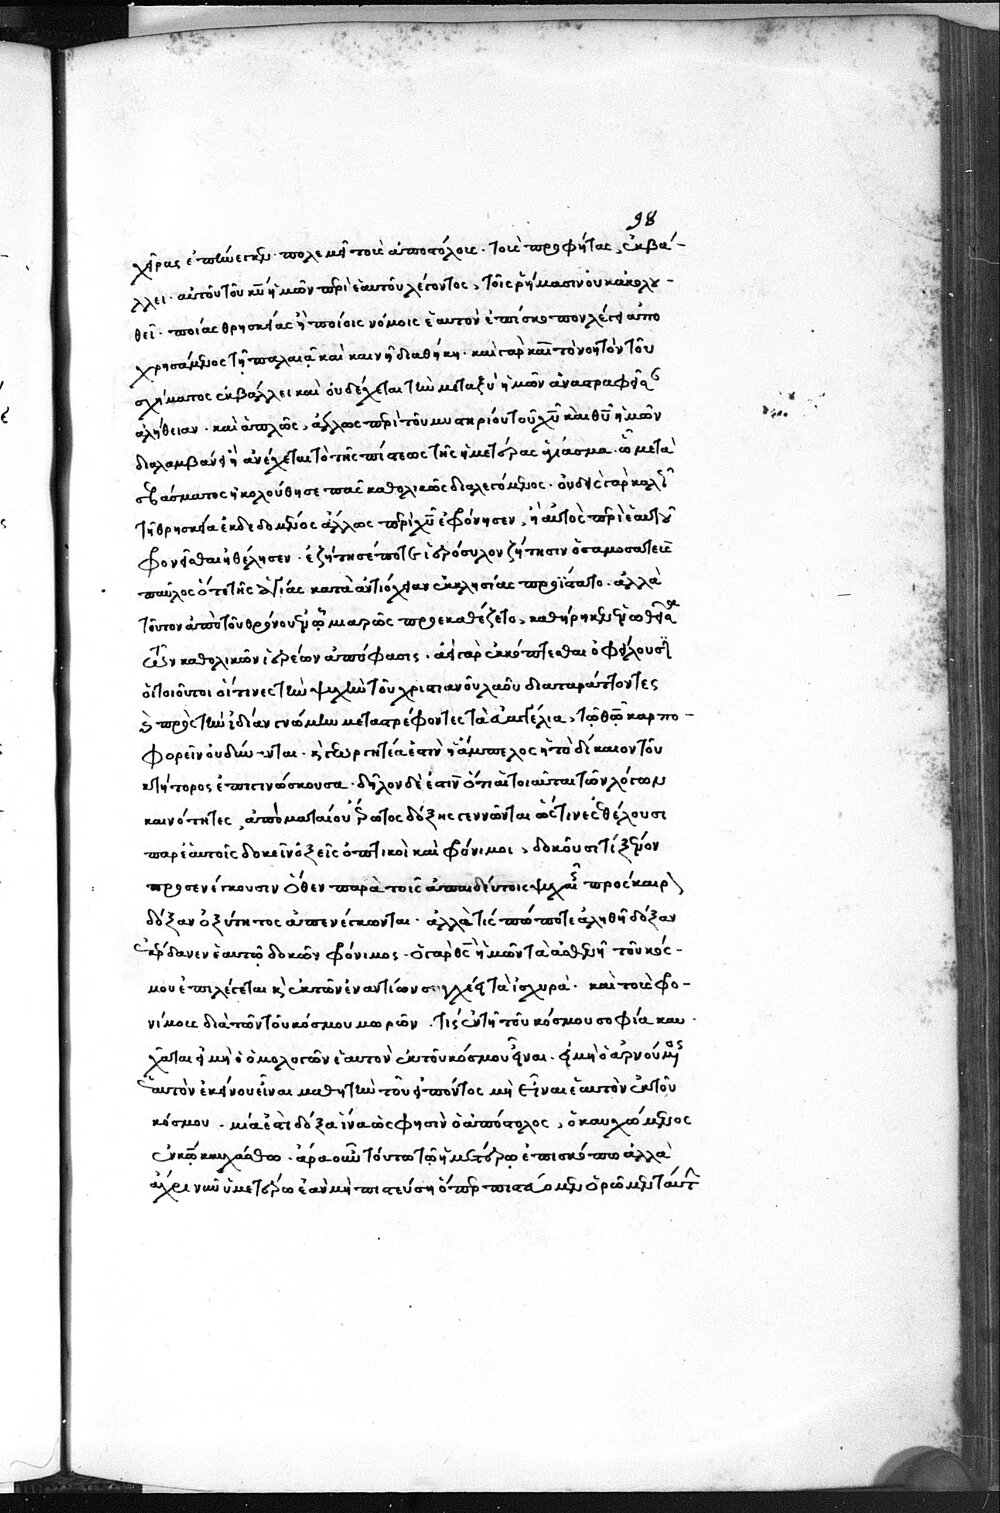 98
χεῖρας ἐπῶμεν. πολεμεῖ τοῖς ἀποστόλοις. τοὺς προφήτας, ἐκβά-
λλει. αὐτοῦ τοῦ κυ ἡμῶν περὶ ἑαυτοῦ λέγοντος, τοῖς ῥήμασιν οὐκ ἀκολου-
θεῖ. ποίας θρησκείας ἢ ποίοις νόμοις ἑαυτὸν ἐπίσκοπον λέγει ἀπο
χρησάμενος τῇ παλαιᾷ καὶ καινῇ διαθήκῃ. καὶ γὰρ καὶ τὸν υἱὸν τοῦ
σχήματος ἐκβάλλει καὶ οὐ δέχεται τὴν μεταξὺ ἡμῶν ἀναστραφεῖσαν
ἀλήθειαν. καὶ ἁπλῶς, ἄλλως περὶ τοῦ μυστηρίου τοῦ χυ καὶ θυ ἡμῶν
διαλαμβάνει ἢ ἀνέχεται τὸ τῆς πίστεως τῆς ἡμετέρας ἁγίασμα. ᾧ μετὰ
σεβάσματος ἠκολούθησε πᾶς καθολικῶς διαλεγόμενος. οὐδεὶς γὰρ καλῇ
τῇ θρησκείᾳ ἐκδεδομένος ἄλλως περὶ χυ ἐφρόνησεν, ἢ αὐτὸς περὶ ἑαυτοῦ
φρονεῖσθαι ἠθέλησεν. ἐζήτησέ ποτε ἱερόσυλον ζήτησιν ὁ σαμοσατεὺς
παῦλος ὅτε τῆς ἁγίας κατὰ ἀντιόχειαν ἐκκλησίας προΐστατο. ἀλλὰ
τοῦτον ἀπὸ τοῦ θρόνου ἐν ᾧ μιαρῶς προεκαθέζετο, καθῄρηκεν ἐνωθεῖσα
τῶν καθολικῶν ἱερέων ἀπόφασις. ἀεὶ γὰρ ἐκκόπτεσθαι ὀφείλουσιν
οἱ τοιοῦτοι οἵτινες τὴν ψυχὴν τοῦ χριστιανοῦ λαοῦ διαταράττοντες
καὶ πρὸς τὴν ἰδίαν γνώμην μεταστρέφοντες τὰ ἀμπέλια, τῷ θῶ καρπο-
φορεῖν οὐ δύνανται. καὶ γεωργητέα ἐστὶν ἡ ἄμπελος ἡ τὸ δίκαιον τοῦ
κτήτορος ἐπιγινώσκουσα. δῆλον δέ ἐστιν ὅτι αἱ τοιαῦται τῶν λόγων
καινότητες, ἀπὸ ματαίου ἔρωτος δόξης γεννῶνται ὥς τινες θέλουσι
παρ' ἑαυτοῖς δοκεῖν ὀξεῖς ὀπτικοὶ καὶ φρόνιμοι, δοκοῦσι τί ξένον
προσενέγκουσιν ὅθεν παρὰ τοῖς ἀπαιδεύτοις ψυχαῖς πρόσκαιρον
δόξαν ὀξύτητος ἀπενέγκωνται. ἀλλὰ τίς πώποτε ἀληθῆ δόξαν
ἐκέρδανεν ἑαυτῷ δοκῶν φρόνιμος. ὁ γὰρ θς ἡμῶν τὰ ἀσθενῆ τοῦ κόσ-
μου ἐπιλέγεται καὶ ἐκ τῶν ἐναντίων συλλέγει τὰ ἰσχυρά. καὶ τοὺς φρο-
νίμους διὰ τῶν τοῦ κόσμου μωρῶν. τίς ἐν τῇ τοῦ κόσμου σοφίᾳ καυ-
χᾶται εἰ μὴ ὁ ὁμολογῶν ἑαυτὸν ἐκ τοῦ κόσμου εἶναι. εἰ μὴ ὁ ἀρνούμενος
ἑαυτὸν ἐκείνου εἶναι μαθητὴν τοῦ εἰπόντος μὴ εἶναι ἑαυτὸν ἐκ τοῦ
κόσμου. μία ἐστὶ δόξα ἵνα ὥς φησιν ὁ ἀπόστολος, ὁ καυχώμενος
ἐν κῶ καυχάσθω. ἆρα οὖν τούτῳ τῷ ἡμετέρῳ ἐπισκόπῳ ἀλλὰ
ἄχρι νῦν ὑμετέρῳ ἐὰν μὴ πιστεύσῃ ὅπερ πιστεύομεν ὁρῶμεν ταύτην